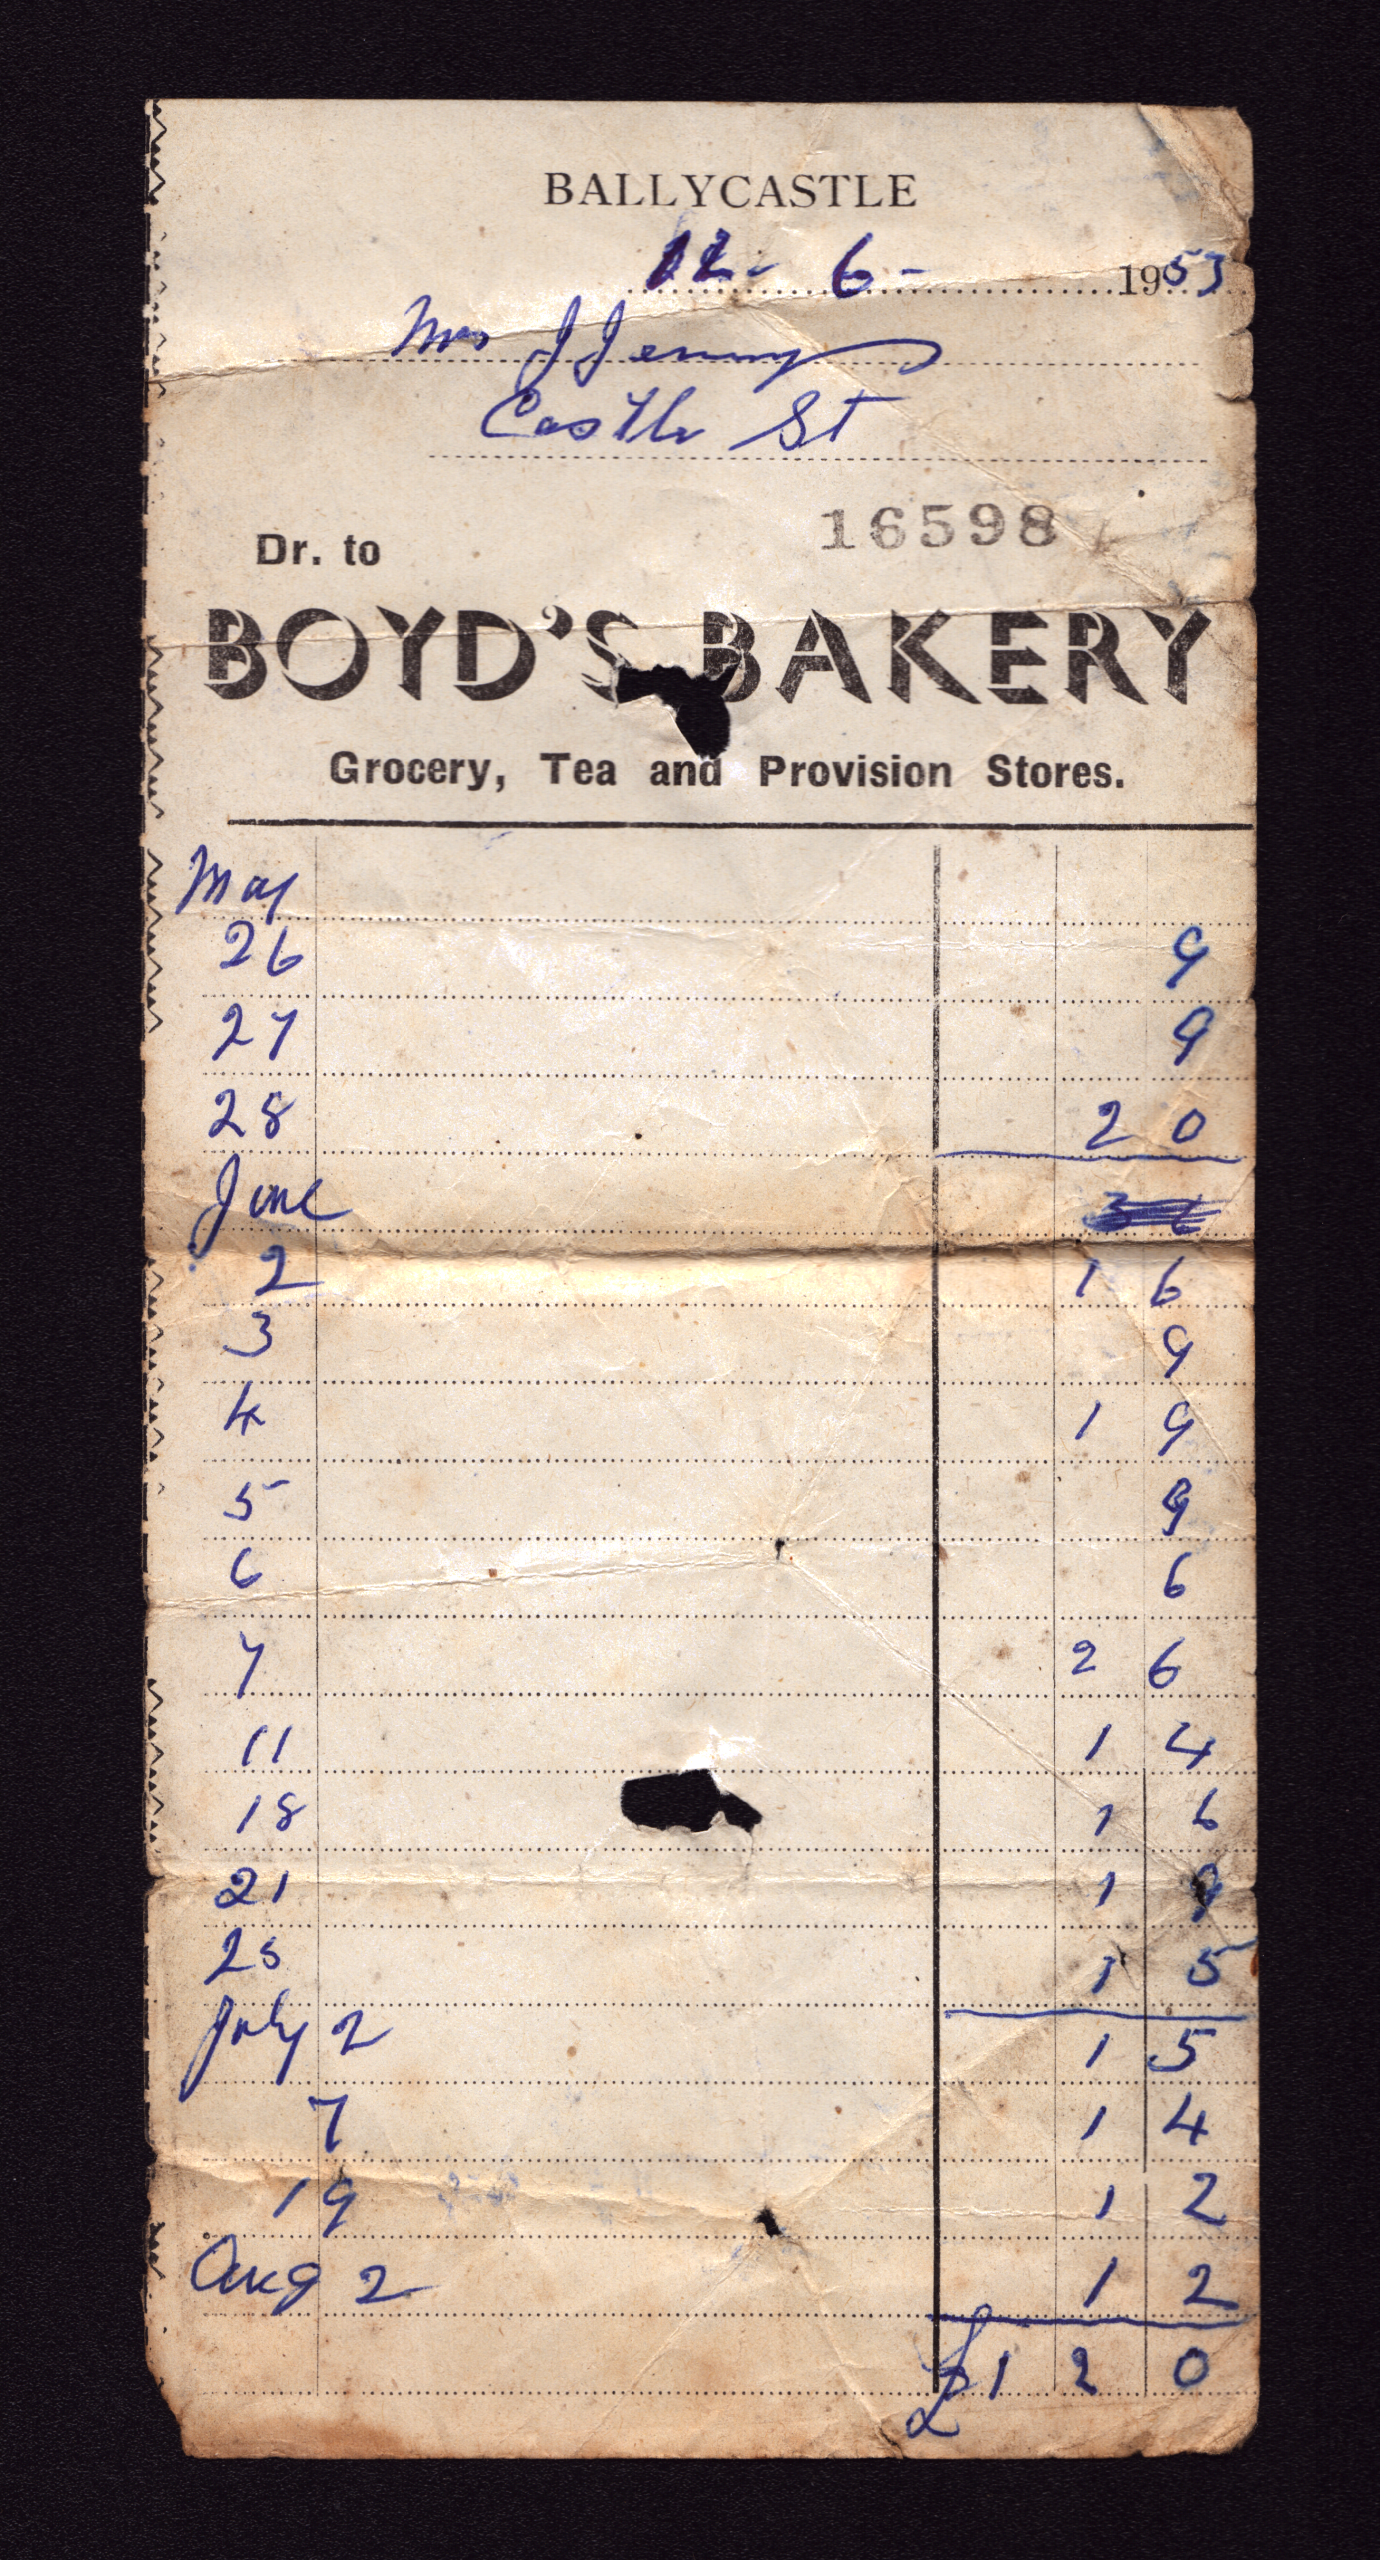 BALLYCASTLE
12 - 6 - 1953
Mrs J Jenny
Castle St
16598
Dr. to
BOYD'S BAKERY
Grocery, Tea and Provision Stores.
May
26 9
27 9
28 2 0
June 3 6
2 1 6
3 9
4 1 9
5 9
6 6
7 2 6
11 1 4
18 1 6
21 1 9
25 1 5
July 2 1 5
7 1 4
19 1 2
Aug 2 1 2
£1 2 0